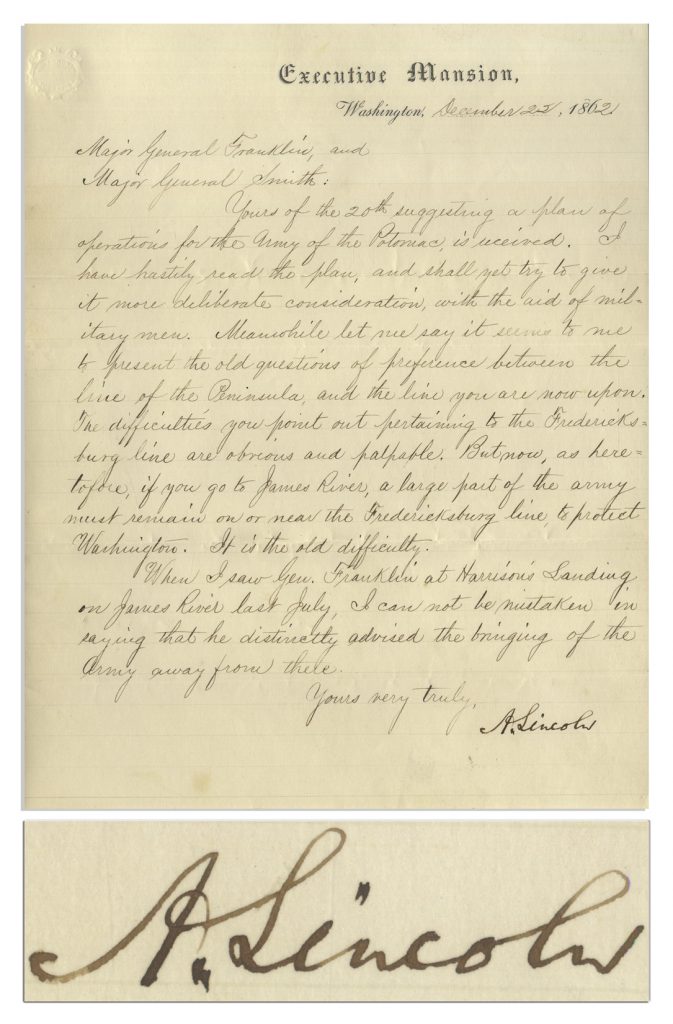 Executive Mansion,
Washington, December 22, 1862
Major General Franklin, and
Major General Smith:
Yours of the 20th suggesting a plan of
operations for the Army of the Potomac, is received. I
have hastily read the plan, and shall yet try to give
it more deliberate consideration, with the aid of mil=
itary men. Meanwhile let me say it seems to me
to present the old questions of preference between the
line of the Peninsula, and the line you are now upon.
The difficulties you point out pertaining to the Fredericks=
burg line are obvious and palpable. But now, as here=
tofore, if you go to James River, a large part of the army
must remain on or near the Fredericksburg line, to protect
Washington. It is the old difficulty.
When I saw Gen. Franklin at Harrison's Landing
on James River last July, I can not be mistaken in
saying that he distinctly advised the bringing of the
Army away from there.
Yours very truly,
A. Lincoln
A. Lincoln